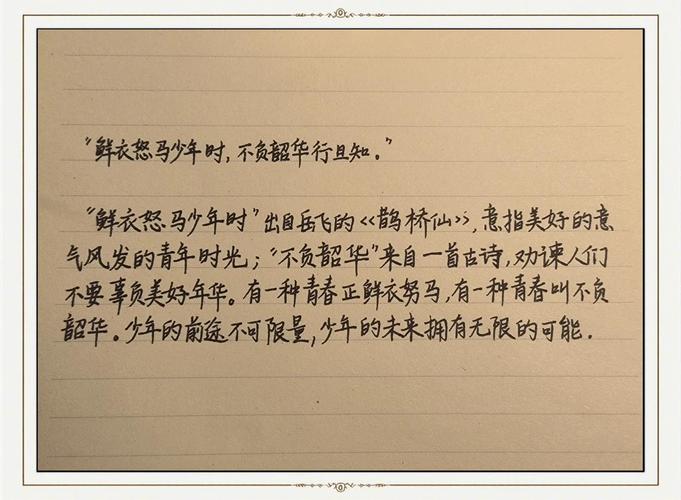 “鲜衣怒马少年时，不负韶华行且知。”
“鲜衣怒马少年时”出自岳飞的《鹊桥仙》，意指美好的意
气风发的青年时光；“不负韶华”来自一首古诗，劝谏人们
不要辜负美好年华。有一种青春正鲜衣努马，有一种青春叫不负
韶华。少年的前途不可限量，少年的未来拥有无限的可能．